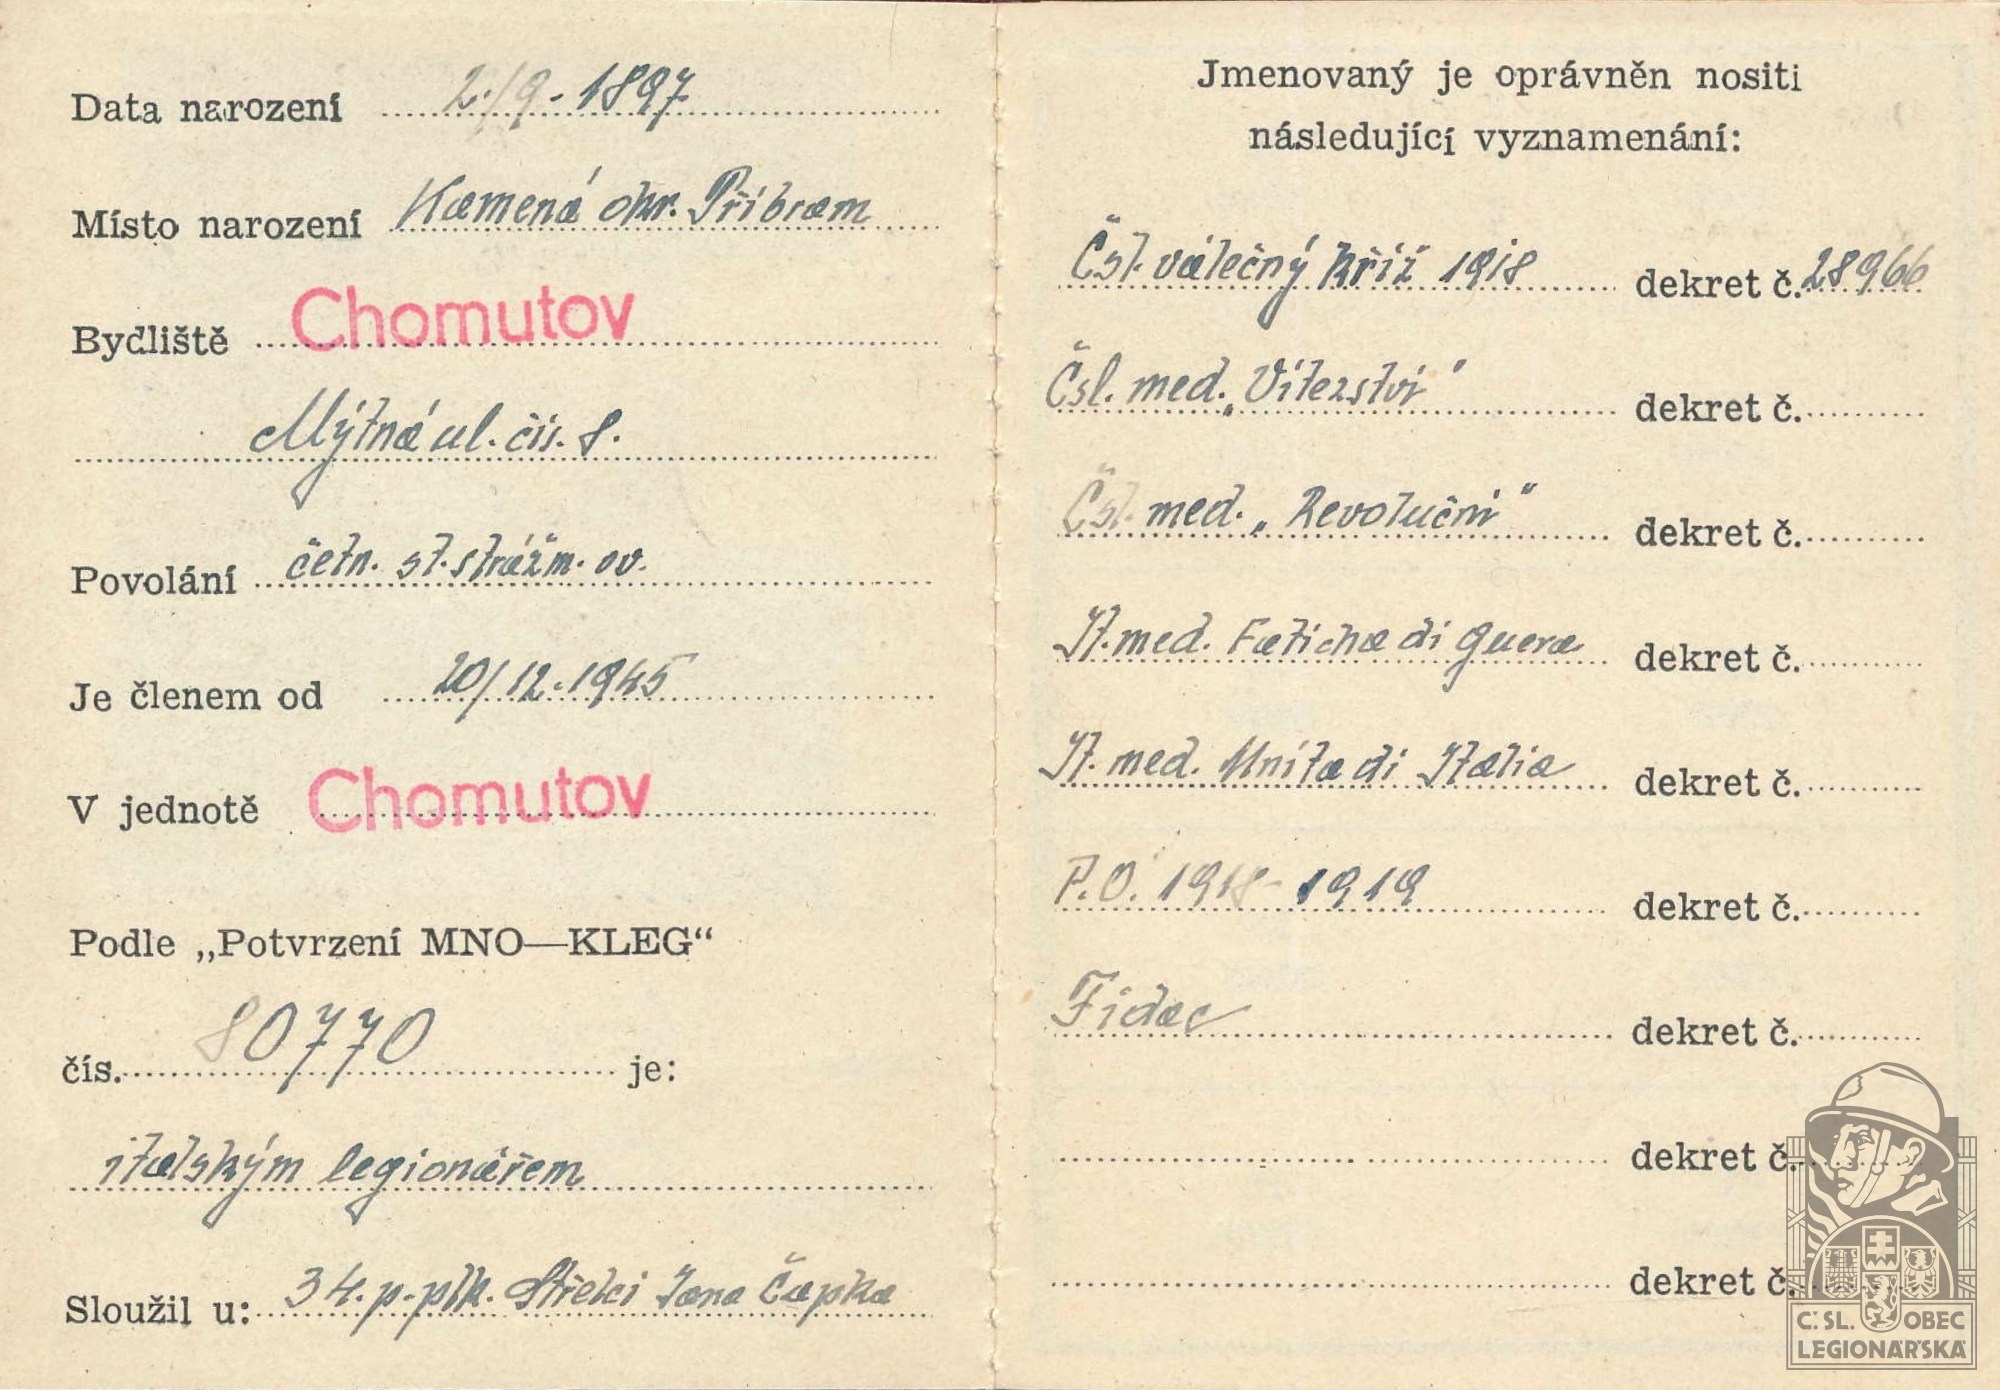 Data narození 2./9.-1897
Místo narození Kamená okr. Příbram
Bydliště Chomutov
Mýtná ul. čís. 8.
Povolání četn. st. strážm. ov.
Je členem od 20/12.-1945
V jednotě Chomutov
Podle „Potvrzení MNO—KLEG“
čís. 80770 je:
italským legionářem
Sloužil u: 34. p. plk. Střelci Jana Čapka
Jmenovaný je oprávněn nositi
následující vyznamenání:
Čsl. válečný kříž 1918 dekret č. 28966
Čsl. med. „Vítezství“ dekret č.
Čsl. med. „Revoluční“ dekret č.
It. med. Faticha di guera dekret č.
It. med. Unita di Italia dekret č.
P.O. 1918-1919 dekret č.
Fidac dekret č.
dekret č.
dekret č.
Č. SL. OBEC
LEGIONÁŘSKÁ